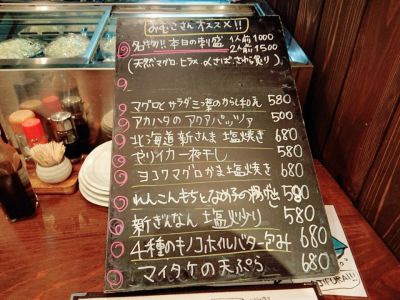 おむこさんオススメ!!
名物!!本日の刺盛 1人前1000
2人前1500
(天然マグロ、ヒラス、〆さば、さわら炙り)
マグロとサラダミズ菜のからし和え 580
アカハタのアクアパッツァ 500
北海道新さんま塩焼き 680
ヤリイカ一夜干し 580
ヨコワマグロかま塩焼き 680
れんこんもちとなめ子の揚出し 580
新ぎんなん塩炒り 580
4種のキノコホイルバター包み 680
マイタケの天ぷら 680